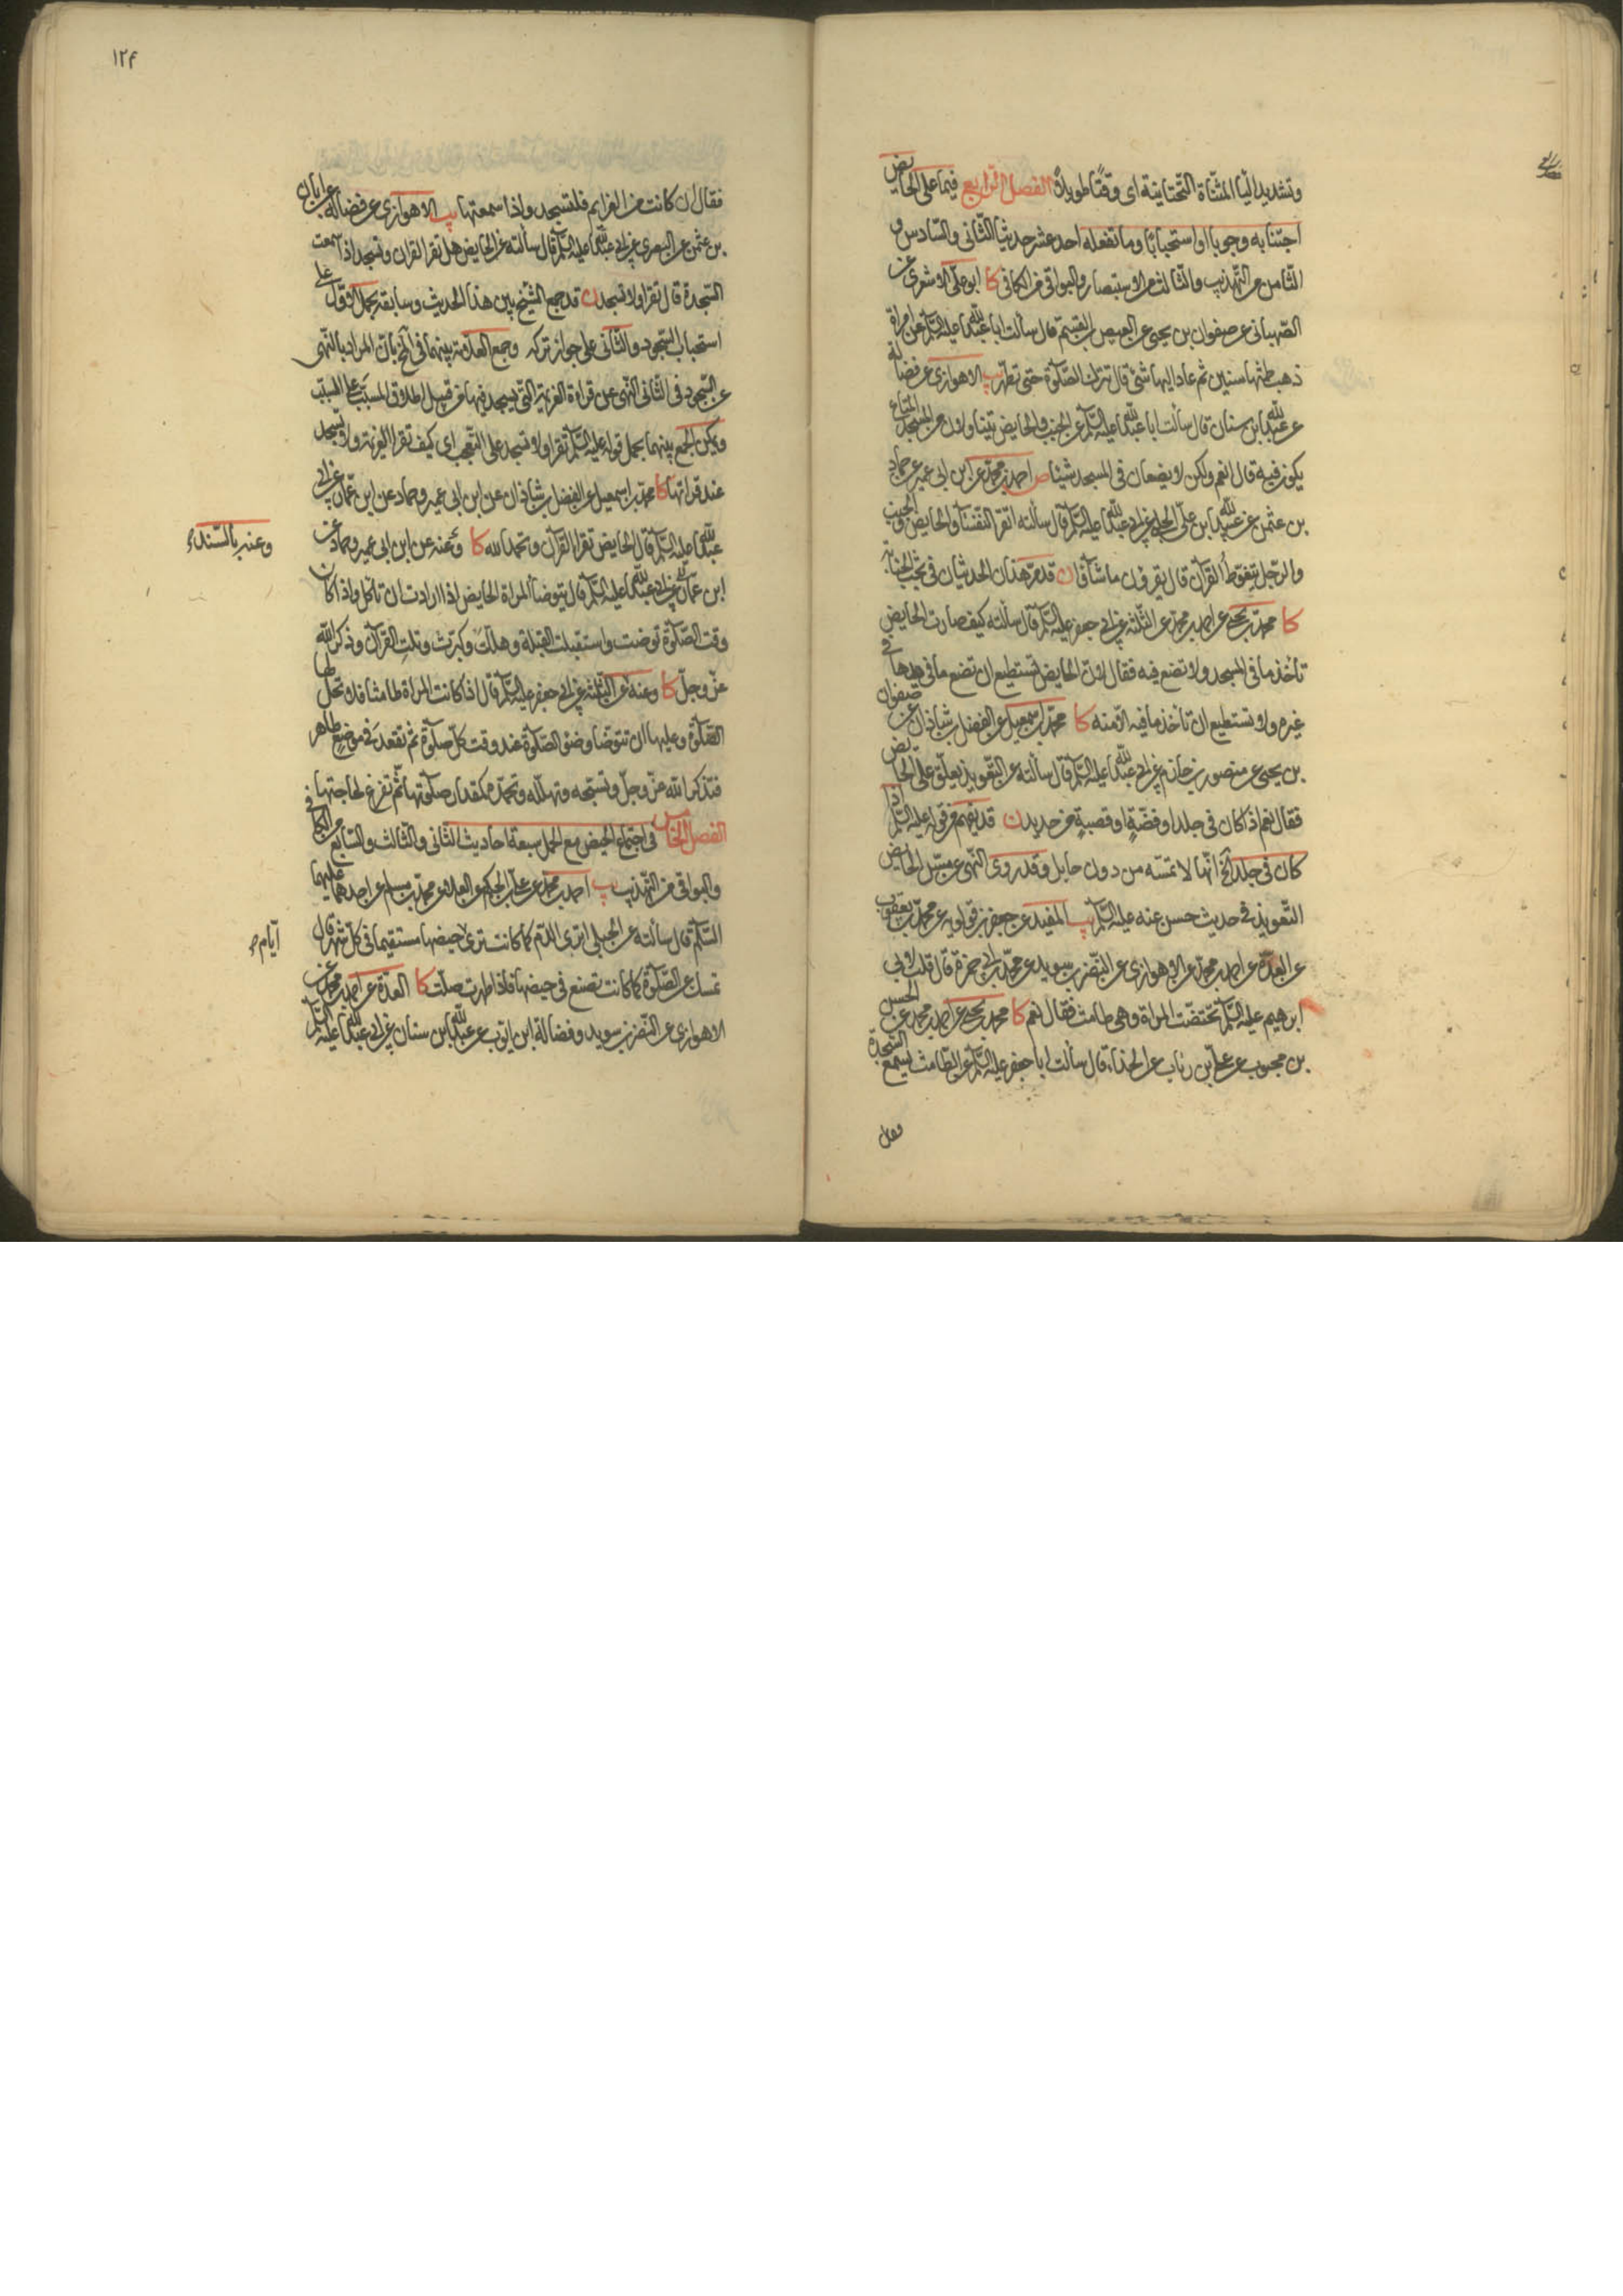 وتشديد اليا المثنّاة التحتانيّة اى وقتًا طويلاً الفصل الرّابع فيما على الحايض
اجتنابه وجوبا او استحبابًا وما تفعله احد عشر حديثا الثّانى والسّادس و
الثّامن من التّهذيب والثّالث من الاستبصار والبواقى من الكافى كا ابو علىّ الاشعرى عن
الصّهبانى عن صفوان بن يحيى عن العيص بن القسم قال سألت ابا عبد الله عليه السّلم عن امراة
ذهب طمثها سنين ثم عاد اليها شئ قال تترك الصّلوة حتى تطهر يب الاهوازى عن فضالة
عن عبد الله بن سنان قال سألت ابا عبد الله عليه السّلم عن الجنب والحايض يتناولان من المسجد المتاع
يكون فيه قال نعم ولكن لا يضعان فى المسجد شيئا ص احمد بن محمّد عن ابن ابى عمير عن حماد
بن عثمن عن عبيد الله بن علىّ الحلبى عن ابى عبد الله عليه السّلم قال سألته اتقرا النّفسا والحايض والجنب
والرّجل يتغوّط القرآن قال يقرؤن ما شآؤا ن قد مرّ هذان الحديثان فى بحث الجنابة
كا محمّد بن يحيى عن احمد بن محمّد عن الثّلثة عن ابى جعفر عليه السّلم قال سألته كيف صارت الحايض
تأخذ ما فى المسجد ولا تضع فيه فقال لانّ الحايض تستطيع ان تضع ما فى يدها فى
غيره ولا تستطيع ان تأخذ ما فيه الاّ منه كا محمّد بن اسمعيل عن الفضل بن شاذان عن صفوان
بن يحيى عن منصور بن حازم عن ابى عبد الله عليه السّلم قال سألته عن التّعويذ يعلّق على الحايض
فقال نعم اذا كان فى جلد او فضّةٍ او قصبةٍ من حديد ن قد يفهم من قوله عليه السّلم اذا
كان فى جلد الخ انّها لا تمسّه من دون حايل وقد روى النّهى عن مسّ الحايض
التّعويذ فى حديث حسن عنه عليه السّلم يب المفيد عن جعفر بن قولويه عن محمّد بن يعقوب
عن العدّة عن احمد بن محمّد عن الاهوازى عن النّضر بن سويد عن محمّد بن ابى حمزة قال قلت لابى
ابرهيم عليه السّلم تختضب المراة وهى طامث فقال نعم كا محمد بن يحيى عن احمد بن محمد عن الحسن
بن محبوب عن علىّ بن رئاب عن الحذاء قال سألت ابا جعفر عليه السّلم عن الطّامث تسمع السّجدة
فقال
١٢٤
فقال ان كانت من العزايم فلتسجد واذا سمعتها يب الاهوازى عن فضالة عن ابان
بن عثمن عن البصرى عن ابى عبد الله عليه السّلم قال سألته عن الحايض هل تقرا القران وتسجد اذا سمعت
السّجدة قال تقرا ولا تسجد ن قد جمع الشّيخ بين هذا الحديث وسابقه بحمل الاوّل على
استحباب السّجود والثّانى على جواز تركه وجمع العلاّمة بينهما فى الخ بانّ المراد بالنّهى
عن السّجود فى الثانى النّهى عن قراءة العزيمة الّتى يسجد فيها من قبيل اطلاق المسبّب على السبب
ويمكن الجمع بينهما بحمل قوله عليه السّلم تقرا ولا تسجد على التّعجّب اى كيف تقرا العزيمة ولا تسجد
عند قراتها كا محمّد بن اسمعيل عن الفضل بن شاذان عن ابن ابى عمير وحماد عن ابن عمّار عن ابى
عبد الله عليه السّلم قال الحايض تقرا القرآن وتحمد الله كا وعنه عن ابن ابى عمير وحماد عن
وعنه بالسّند
ابن عمار عن ابى عبد الله عليه السّلم قال تتوضأ المراة الحايض اذا ارادت ان تأكل واذا كان
وقت الصّلوة توضت واستقبلت القبلة وهلّلت وكبرت وتلت القرآن وذكر الله
عزّ وجلّ كا وعنه عن الثّلثة عن ابى جعفر عليه السّلم قال اذا كانت المراة طامثا فلا تحلّ لها
الصّلوة وعليها ان تتوضّأ وضؤ الصّلوة عند وقت كلّ صلوة ثم تقعد فى موضع طاهر
فتذكر الله عزّ وجلّ وتسبّحه وتهلّله وتحمده كمقدار صلوتها ثمّ تفرغ لحاجتها
الفصل الخامس فى اجتماع الحيض مع الحمل سبعة احاديث الثانى والثّالث والسّابع من الكافى
والبواقى من التّهذيب يب احمد بن محمّد عن على بن الحكم عن العلاء عن محمّد بن مسلم عن احدهما عليهما
السّلم قال سألته عن الحبلى ترى الدّم كما كانت ترى حيضها مستقيما فى كلّ شهر قال
ايّام
تمسك عن الصّلوة كما كانت تصنع فى حيضها فاذا طهرت صلّت كا العدّة عن احمد بن محمّد عن
الاهوازى عن النّضر بن سويد وفضالة ابن ايّوب عن عبد الله ابن سنان عن ابى عبد الله عليه السّلم